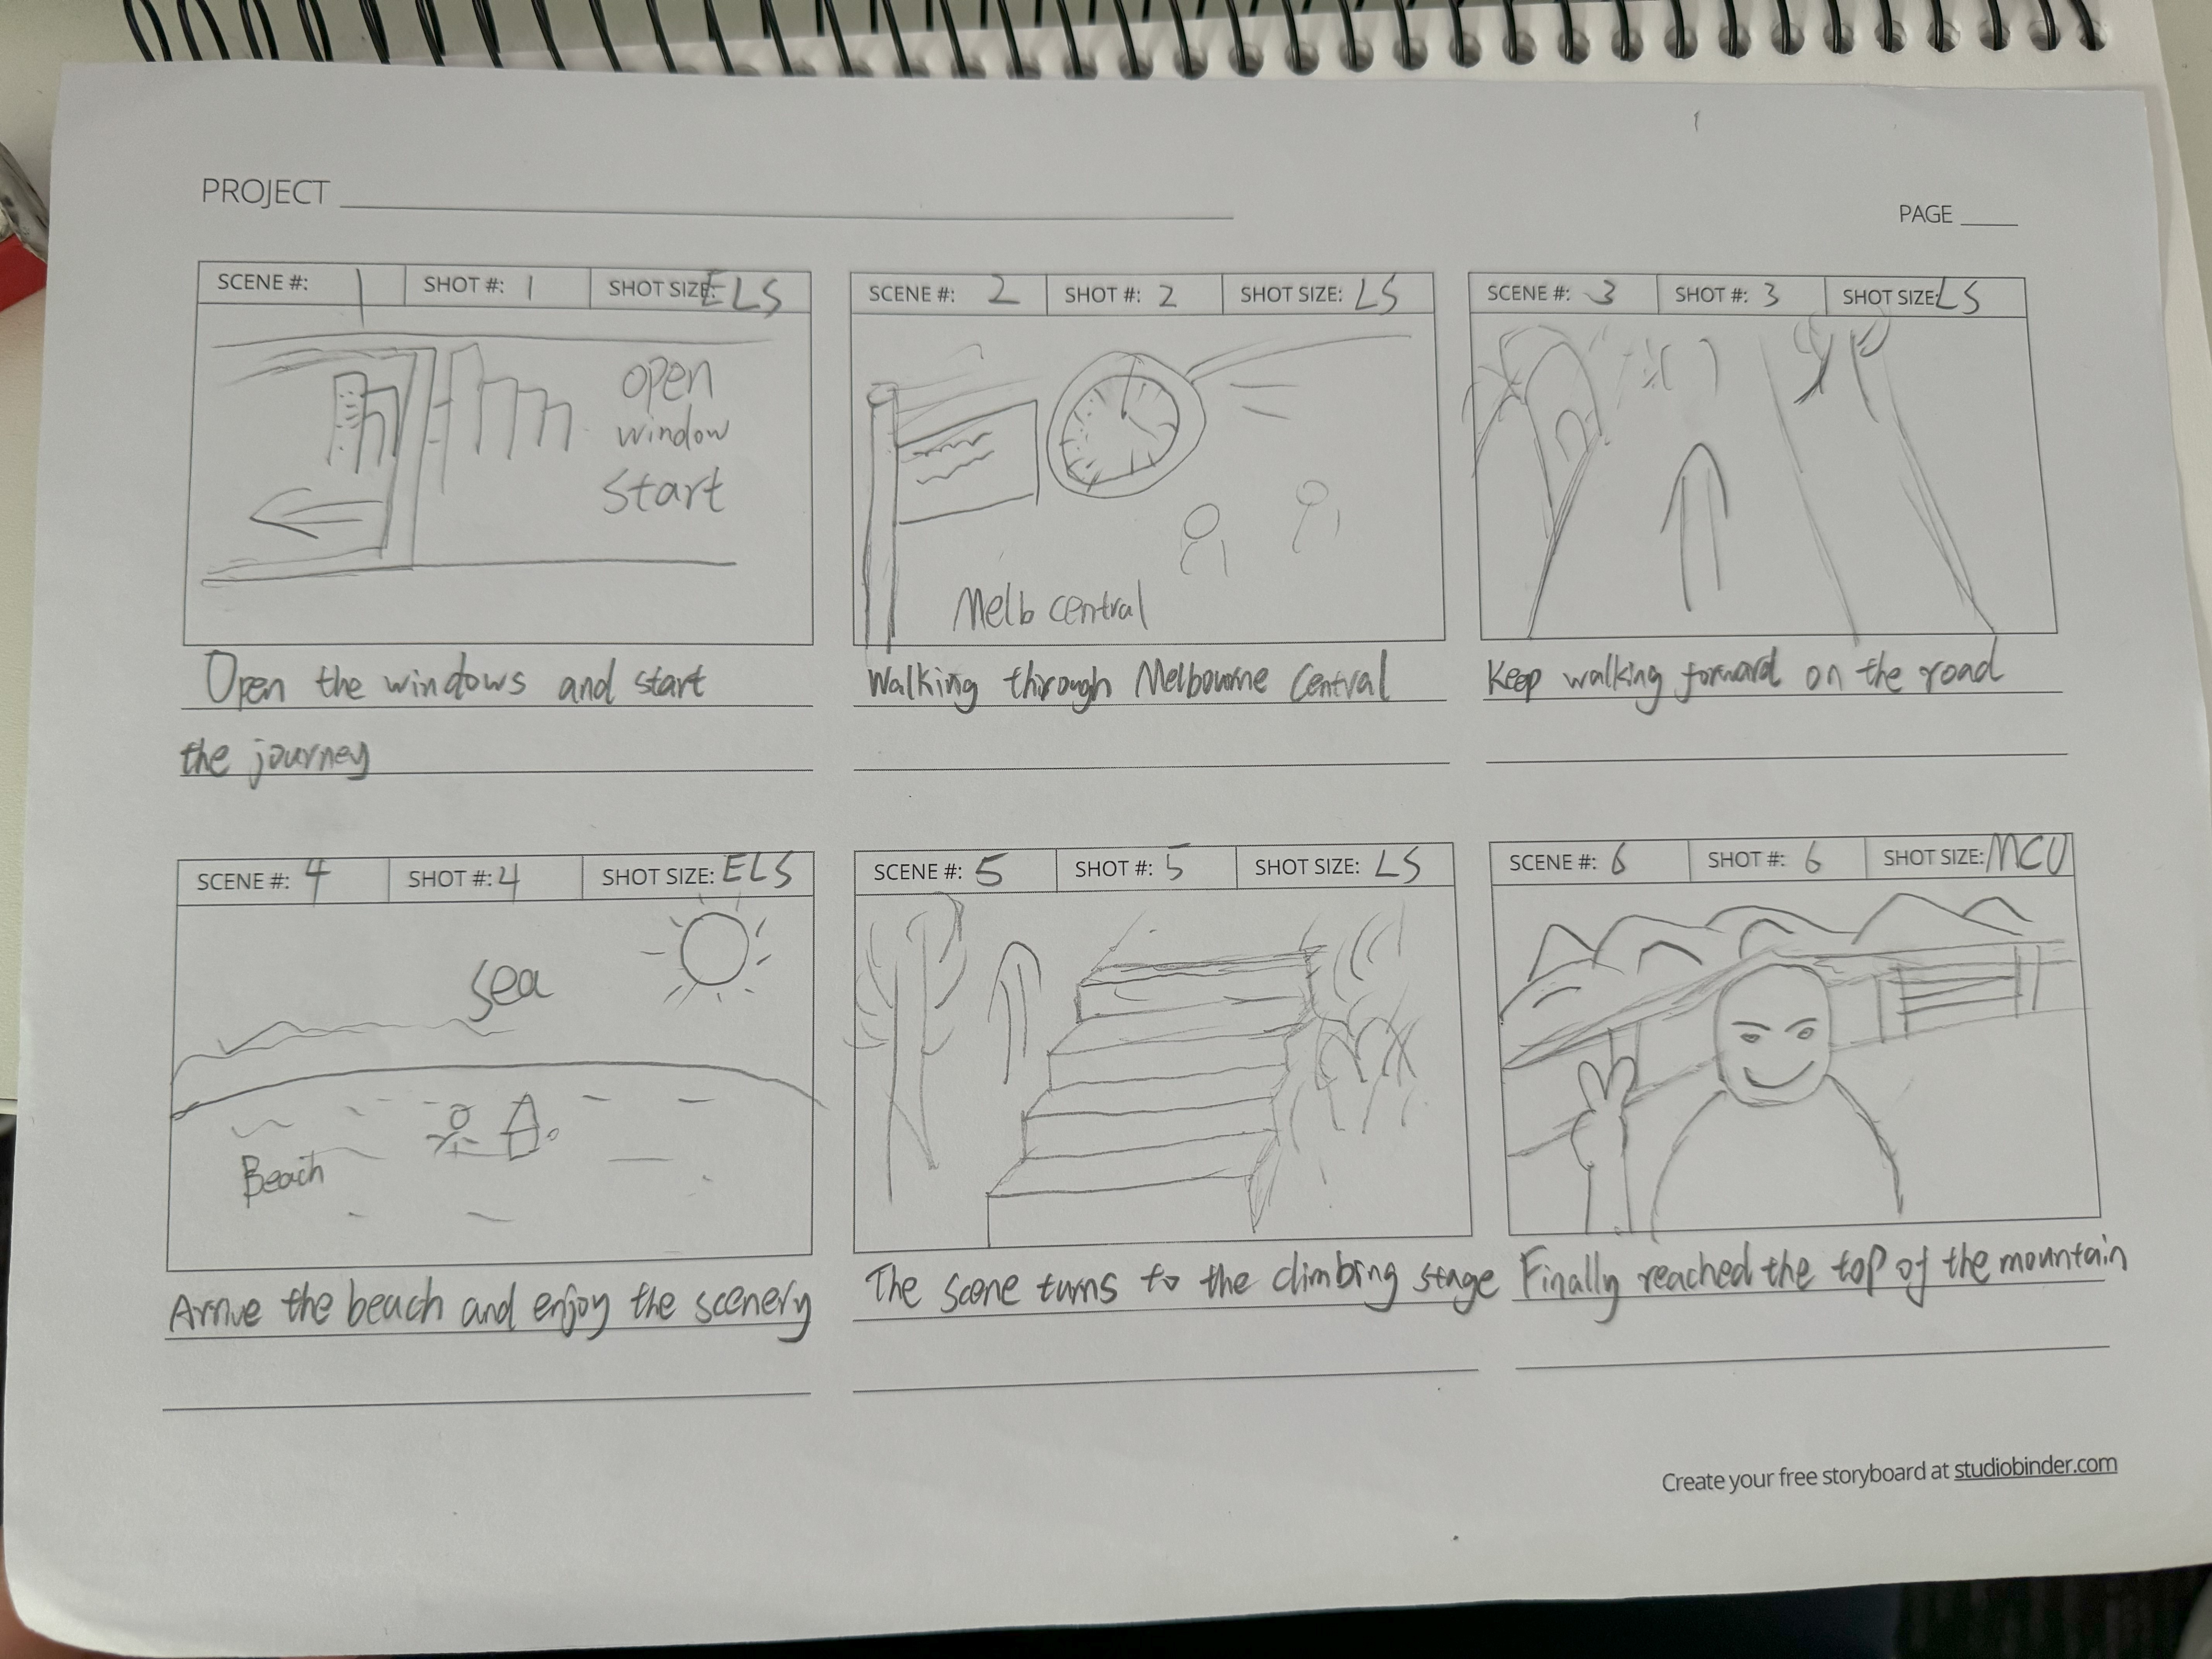 PROJECT
PAGE
SCENE #: 1 SHOT #: 1 SHOT SIZE: ELS
open
window
start
Open the windows and start
the journey
SCENE #: 2 SHOT #: 2 SHOT SIZE: LS
Melb central
Walking through Melbourne Central
SCENE #: 3 SHOT #: 3 SHOT SIZE: LS
Keep walking forward on the road
SCENE #: 4 SHOT #: 4 SHOT SIZE: ELS
Sea
Beach
Arrive the beach and enjoy the scenery
SCENE #: 5 SHOT #: 5 SHOT SIZE: LS
The scene turns to the climbing stage
SCENE #: 6 SHOT #: 6 SHOT SIZE: MCU
Finally reached the top of the mountain
Create your free storyboard at studiobinder.com